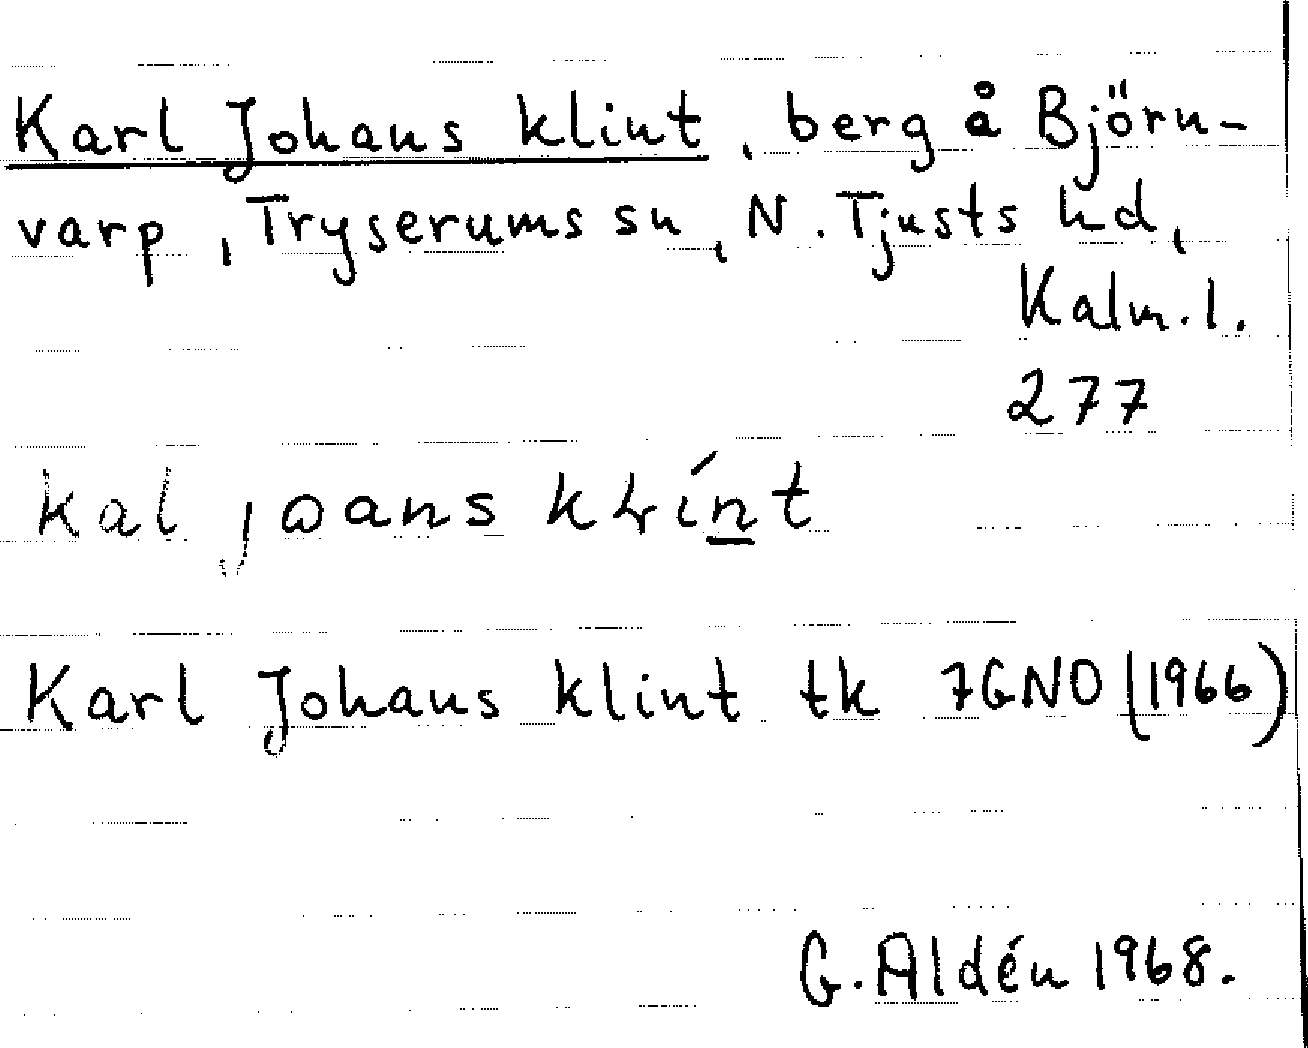 Karl Johans klint, berg å Björn-
varp, Tryserums sn, N. Tjusts hd,
Kalm. l.
277
kal jɷans kɽínt
Karl Johans klint tk 7GNO (1966)
G. Aldén 1968.